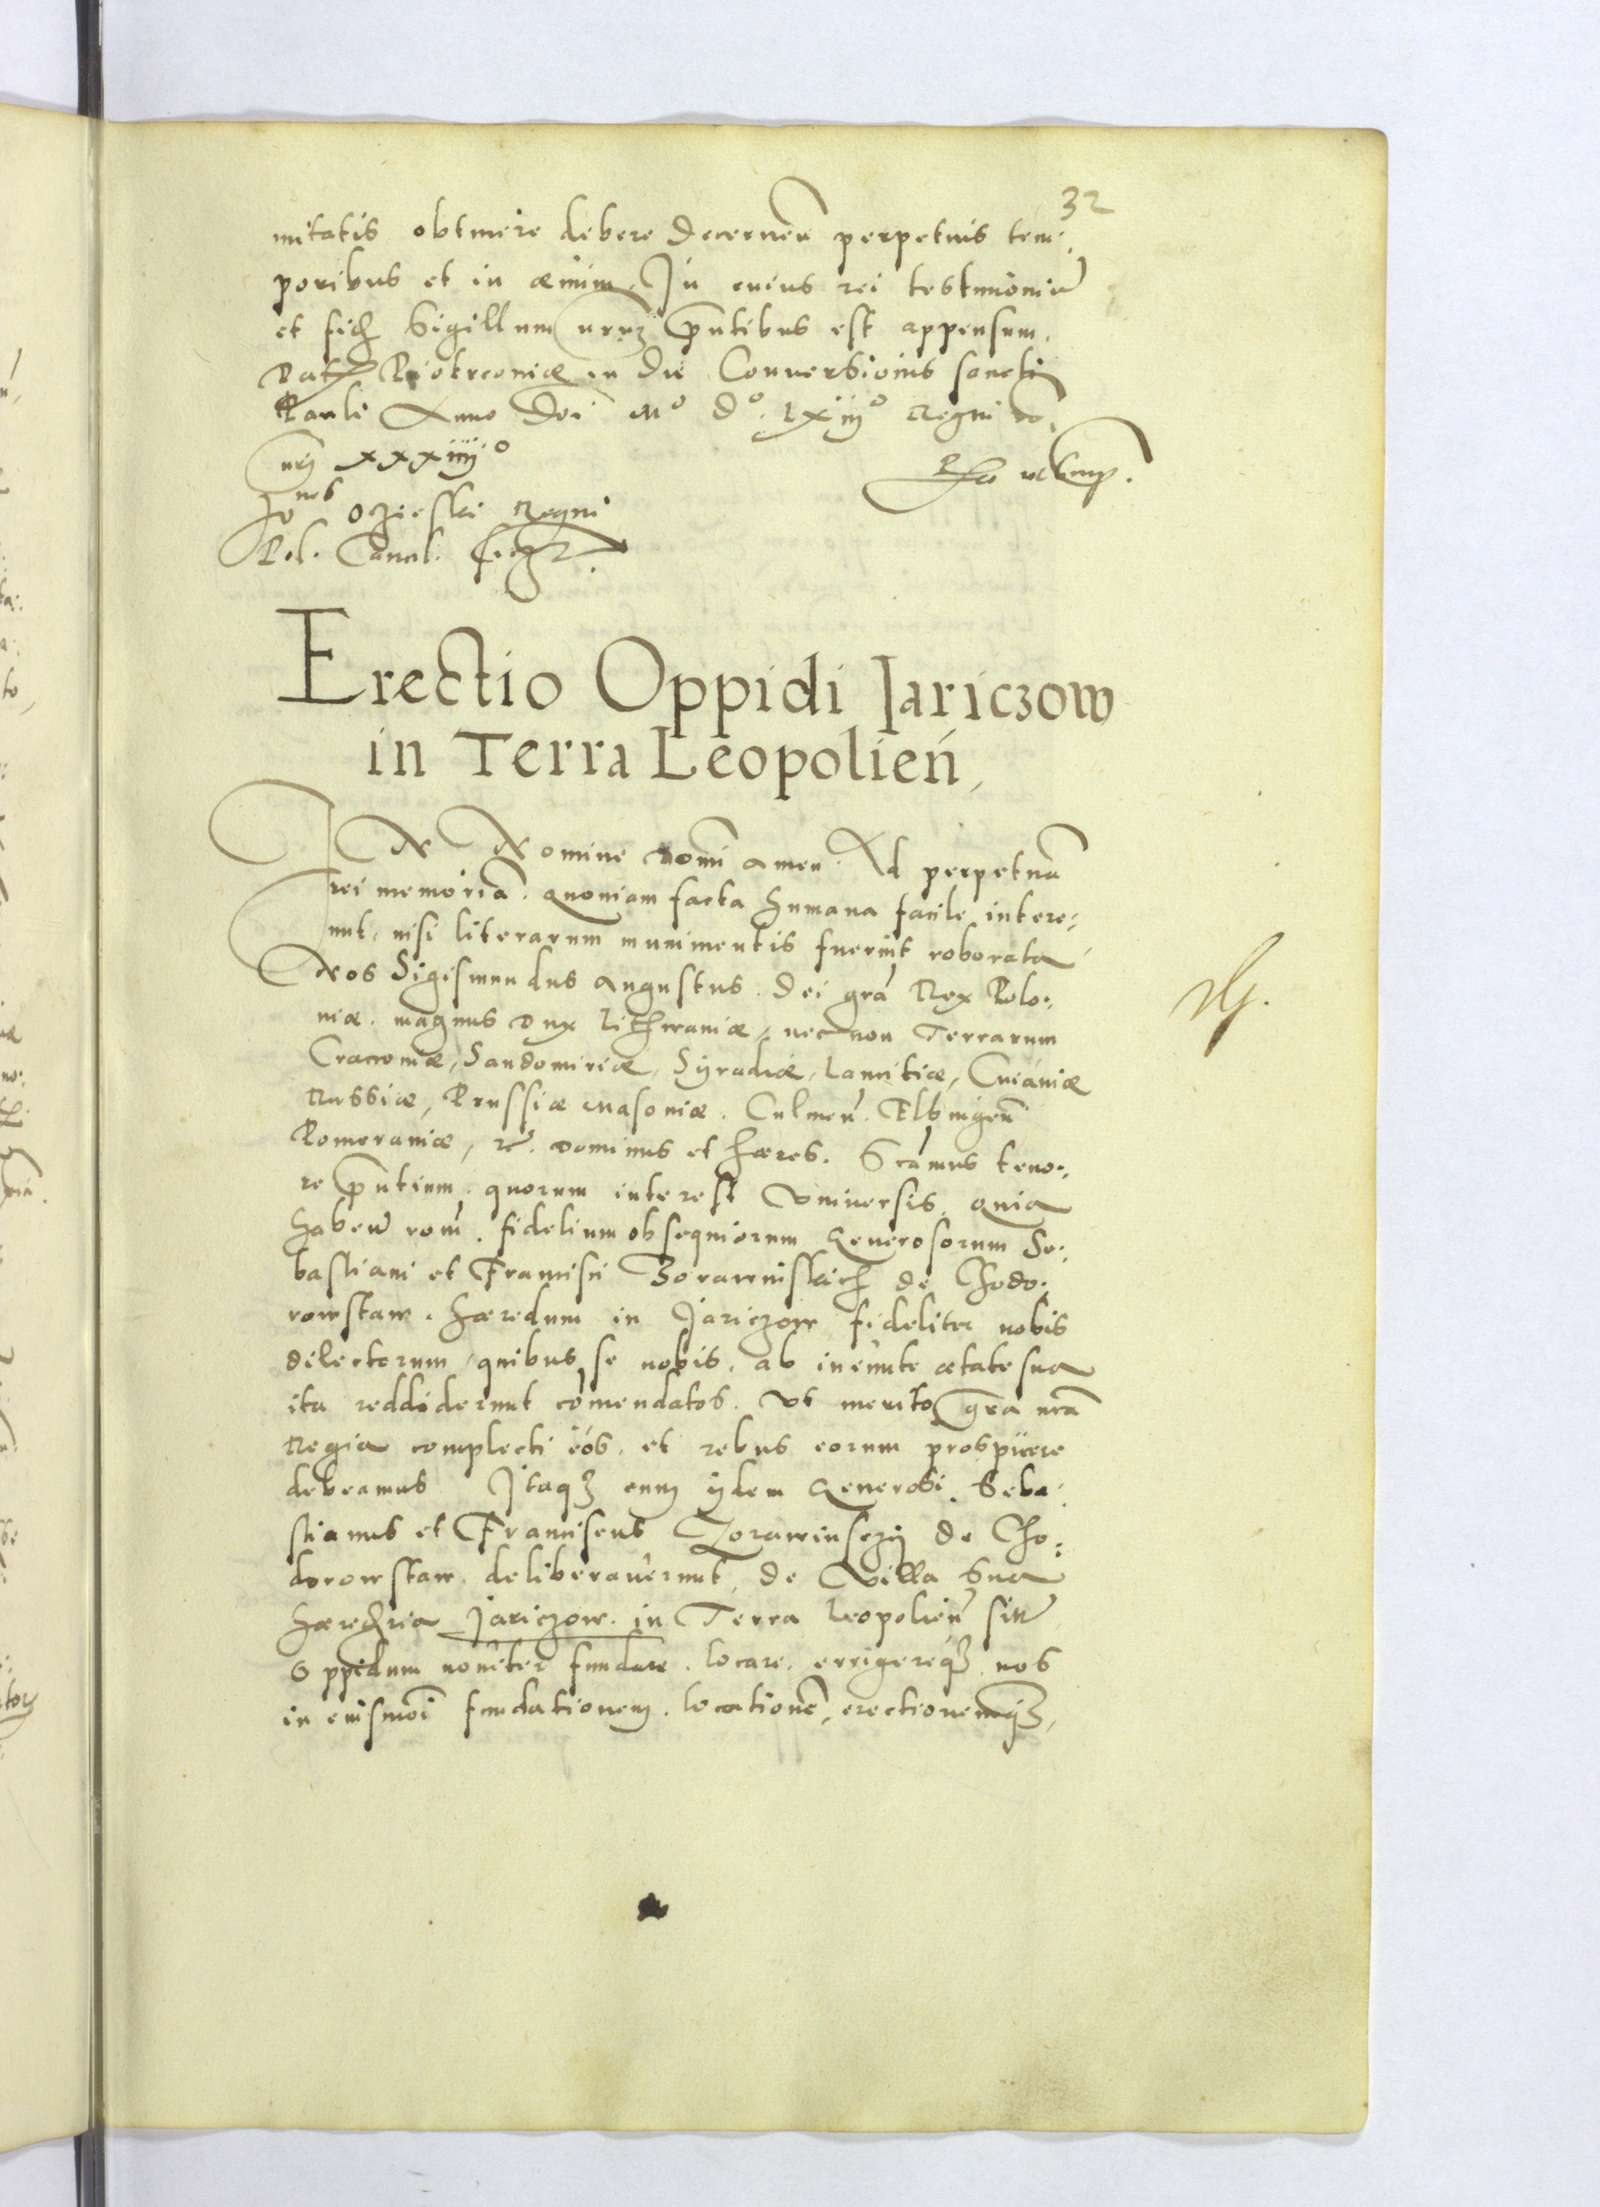 32
mitatis obtinere debere decernen̄ perpetuis tem:
poribus et in æuum. In cuius rei testimoniū
et fidē Sigillum nrūꝫ pn̄tibus est appensum.
Dat Piotrconiæ in die Conuersionis sancti
Pauli Anno Dni Mo Do Lxiijo Regni vo,
nrī xxxiiijo
Joes Oczieski Regni
Pol. Cancel.
Erectio Oppidi Iariczow
in Terra Leopolień,
IN Nomine Domī amen. Ad perpetuā
rei memoriā. Quoniam facta humana facile intere:
unt, nisi literarum munimentis fuerint roborata
Nos Sigismundus Augustus. Dei grā Rex Polo:
niæ. magnus Dux Lithwaniæ, nec non Terrarum
Cracoviæ, Sandomiriæ, Syradiæ, Lanciciæ, Cuiauiæ
Russiæ, Prussiæ Masoviæ. Culmeń. Elbingeń
Pomeraniæ, etc. Dominus et hæres. Significamus teno:
re pn̄tium. quorum interest vniuersis. Quia
haben̄ rom̄. fidelium obsequiorum Generosorum Se:
bastiani et Francisci Zorawinskich de Chodo:
rowstaw. hæredum in Jariczow fideliter nobis
dilectorum, quibus se nobis. ab ineunte ætate sua
ita reddiderunt cōmendatos. vt merito grā nrā
Regia complecti eós. et rebus eorum prospicere
debeamus Itaqꝫ cum ijdem Generosi. Seba:
stianus et Franciscus Zorawinsczij de Cho:
dorowstaw. deliberauerunt, de villa sua
hæredria Jariczow. in Terra Leopolień sitā
Oppidum nouiter fundare. locare. errigereqꝫ. nos
in eiusmōi fundationem. locationē, erectionemqꝫ,